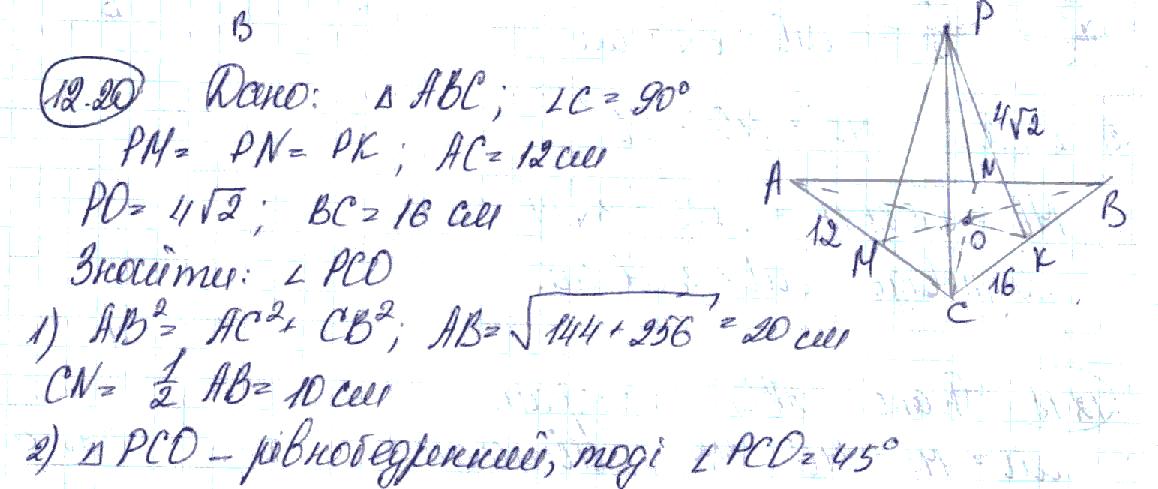 В
12.20 Дано: △ ABC; ∠C = 90°
PM = PN = PK; AC = 12 см
PO = 4√2; BC = 16 см
Знайти: ∠ PCO
1) AB² = AC² + CB²; AB = √144 + 256 = 20 см
CN = 1/2 AB = 10 см
2) △ PCO – рівнобедренний, тоді ∠ PCO = 45°
P
4√2
A
N
B
12
M
O
K
16
C